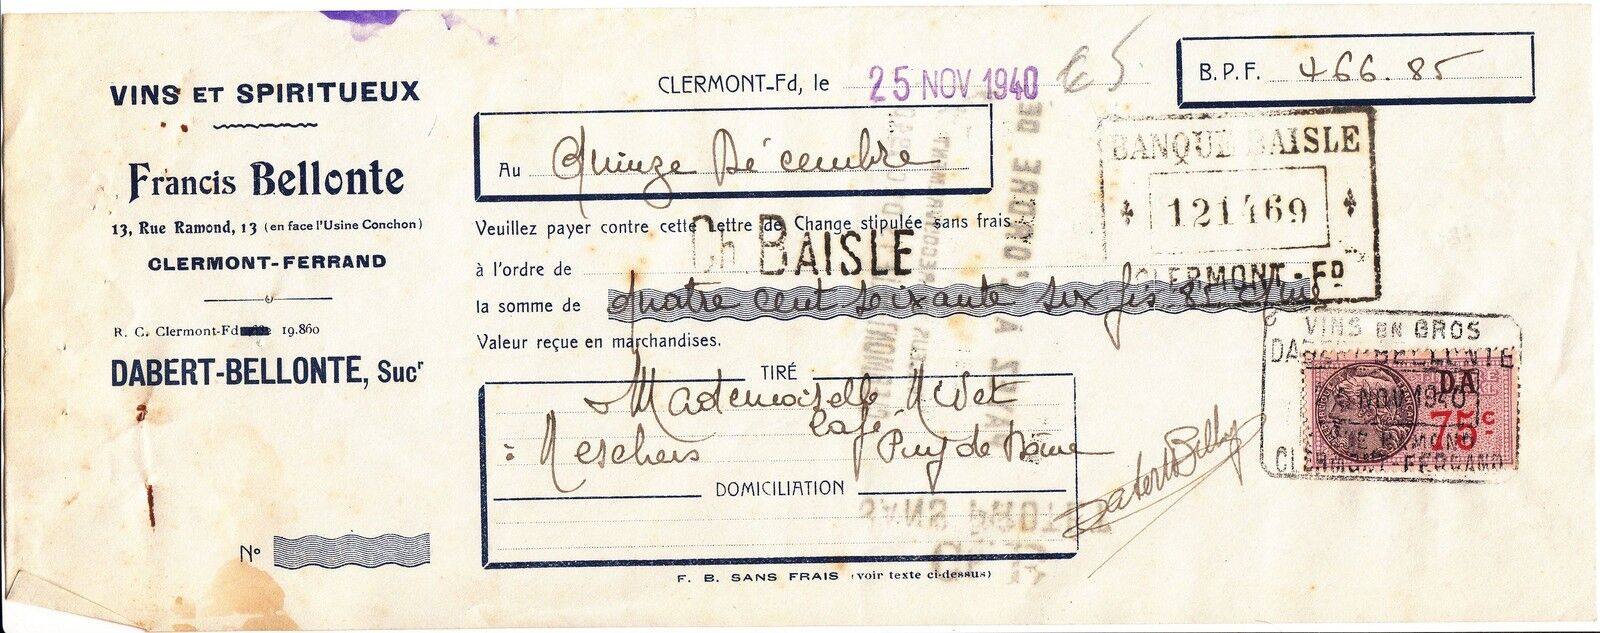 VINS ET SPIRITUEUX
Francis Bellonte
13, Rue Ramond, 13 (en face l'Usine Conchon)
CLERMONT-FERRAND
R. C. Clermont-Fd 19.860
DABERT-BELLONTE, Sucr
No
CLERMONT-Fd, le 25 NOV 1940
65
B.P.F. 466.85
Au Quinze Décembre
Veuillez payer contre cette Lettre de Change stipulée sans frais
à l'ordre de Ch. BAISLE
la somme de quatre cent soixante six frs 85 cmes
Valeur reçue en marchandises.
TIRÉ
Mademoiselle
Café
Neschers Puy de Dôme
DOMICILIATION
F. B. SANS FRAIS (voir texte ci-dessus)
BANQUE BAISLE
121469
CLERMONT-FD
VINS EN GROS
DABERT-BELLONTE
NOV 1940
CLERMONT FERRAND
DA
75c
Dabert Bell
SANS PROTET
À L'ORDRE DE